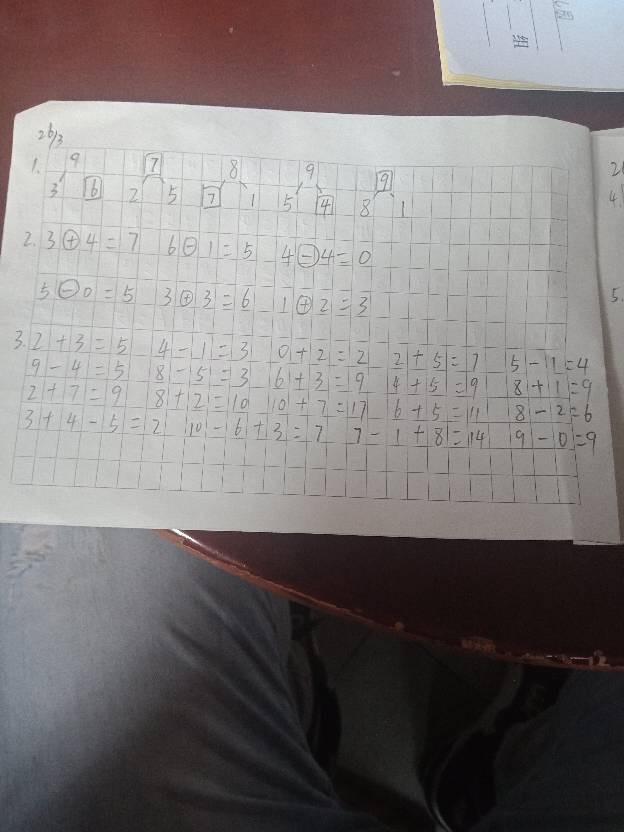 组
26/3
1. 9 [7] 8 9 [9]
3 [6] 2 5 [7] 1 5 [4] 8 1
2. 3⊕4=7 6⊖1=5 4⊖4=0
5⊖0=5 3⊕3=6 1⊕2=3
3. 2+3=5 4-1=3 0+2=2 2+5=7 5-1=4
9-4=5 8-5=3 6+3=9 4+5=9 8+1=9
2+7=9 8+2=10 10+7=17 6+5=11 8-2=6
3+4-5=2 10-6+3=7 7-1+8=14 9-0=9
4.
5.